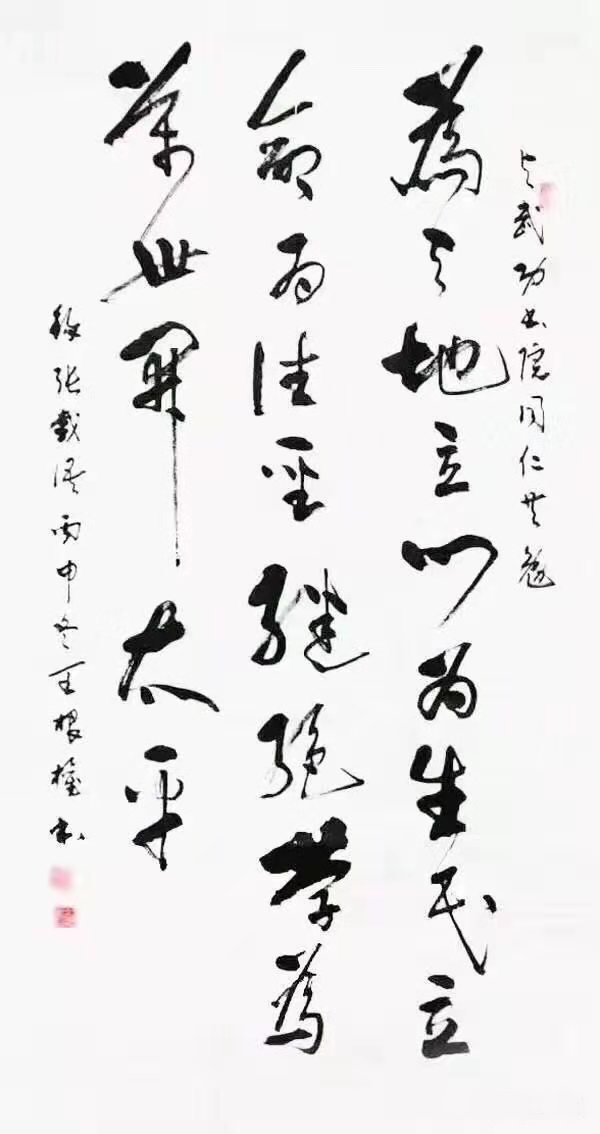 与武功书院同仁共勉
為天地立心为生民立
命为往圣继绝学為
万世開太平
录张载语丙申冬王根权书